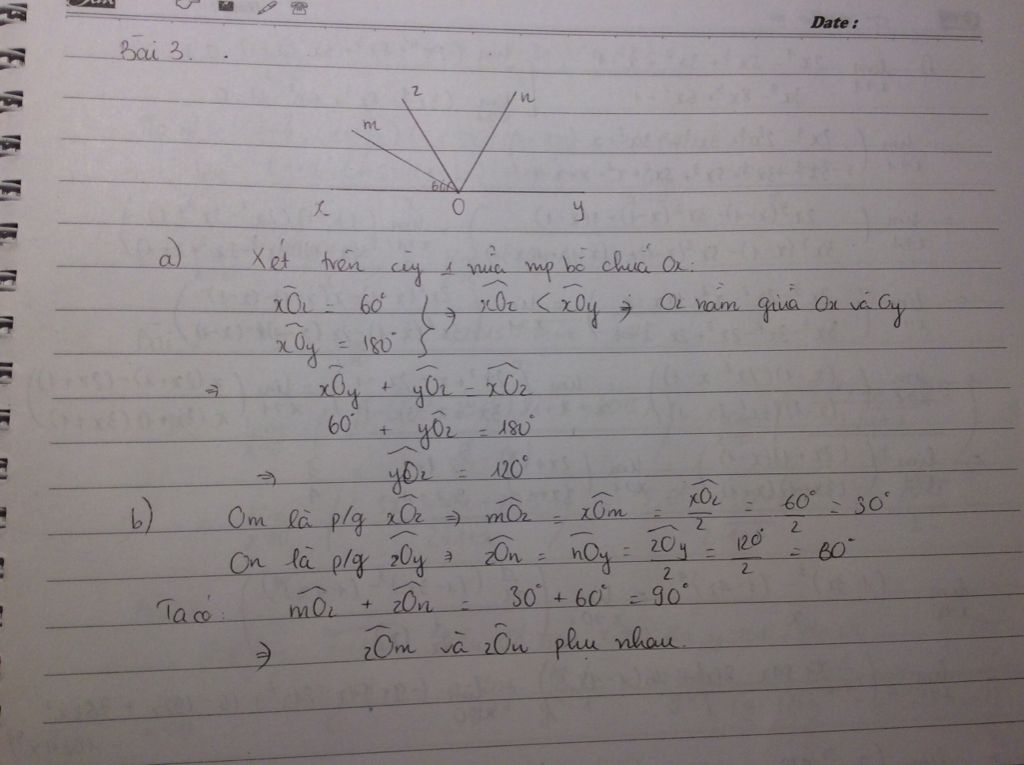 Date :
Bài 3. .
z n
m
60°
x O y
a) Xét trên cùng 1 nửa mp bờ chứa Ox:
xÔz = 60° } ⇒ xÔz < xÔy ⇒ Oz nằm giữa Ox và Oy
xÔy = 180°
⇒ xÔy + yÔz = xÔz
60° + yÔz = 180°
⇒ yÔz = 120°
b) Om là p/g xÔz ⇒ mÔz = xÔm = xÔz/2 = 60°/2 = 30°
On là p/g zÔy ⇒ zÔn = nÔy = zÔy/2 = 120°/2 = 60°
Ta có: mÔz + zÔn = 30° + 60° = 90°
⇒ zÔm và zÔn phụ nhau.